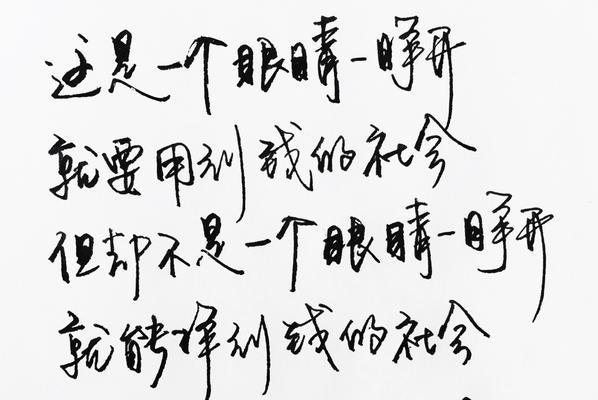 这是一个眼睛一睁开
就要用到钱的社会
但却不是一个眼睛一睁开
就能挣到钱的社会